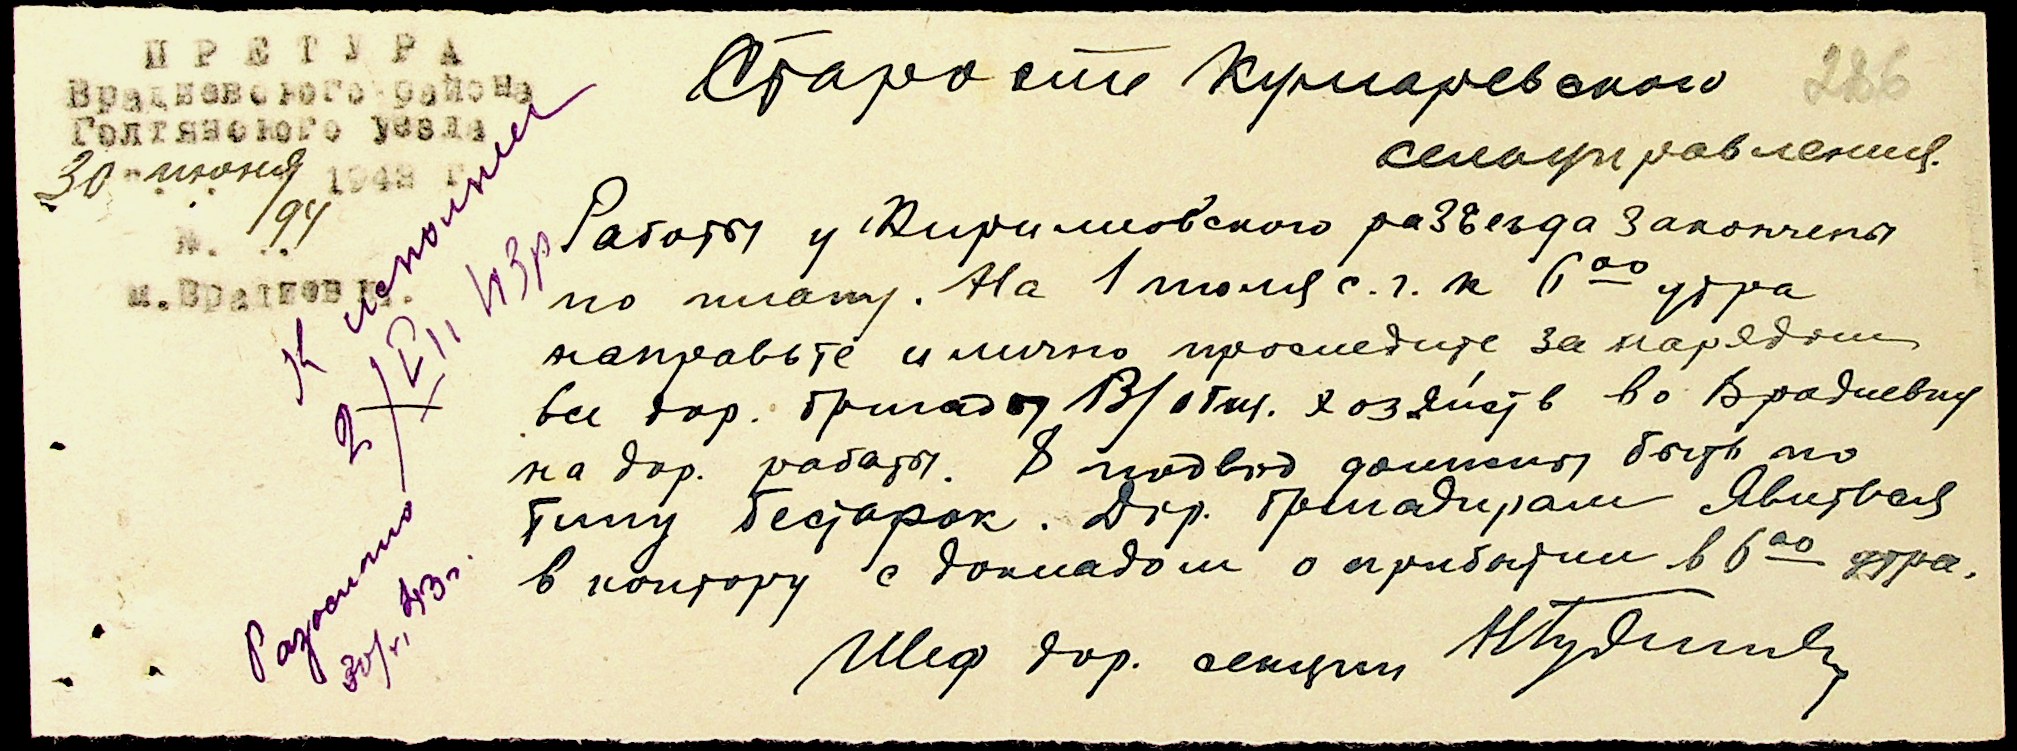 ПРЕТУРА
Врадиевского района
Голтянского уезда
30 июня 1943 г.
№. 194
м. Врадиевка.
286
Старосте Кумаревского
сельуправления.
Работы у Киримлювского разъезда закончены
по плану. На 1 июля с. г. к 6⁰⁰ утра
направьте и лично проследите за нарядом
все дор. бригады В/ общ. хозяйств во Врадиевку
на дор. работы. 8 подвод должны быть по
типу бестарок. Дор. бригадирам явиться
в контору с докладом о прибытии в 6⁰⁰ утра.
Шеф дор. секции
К исполнен
2/VII 43 р
Разослано
30/VI 43 г.